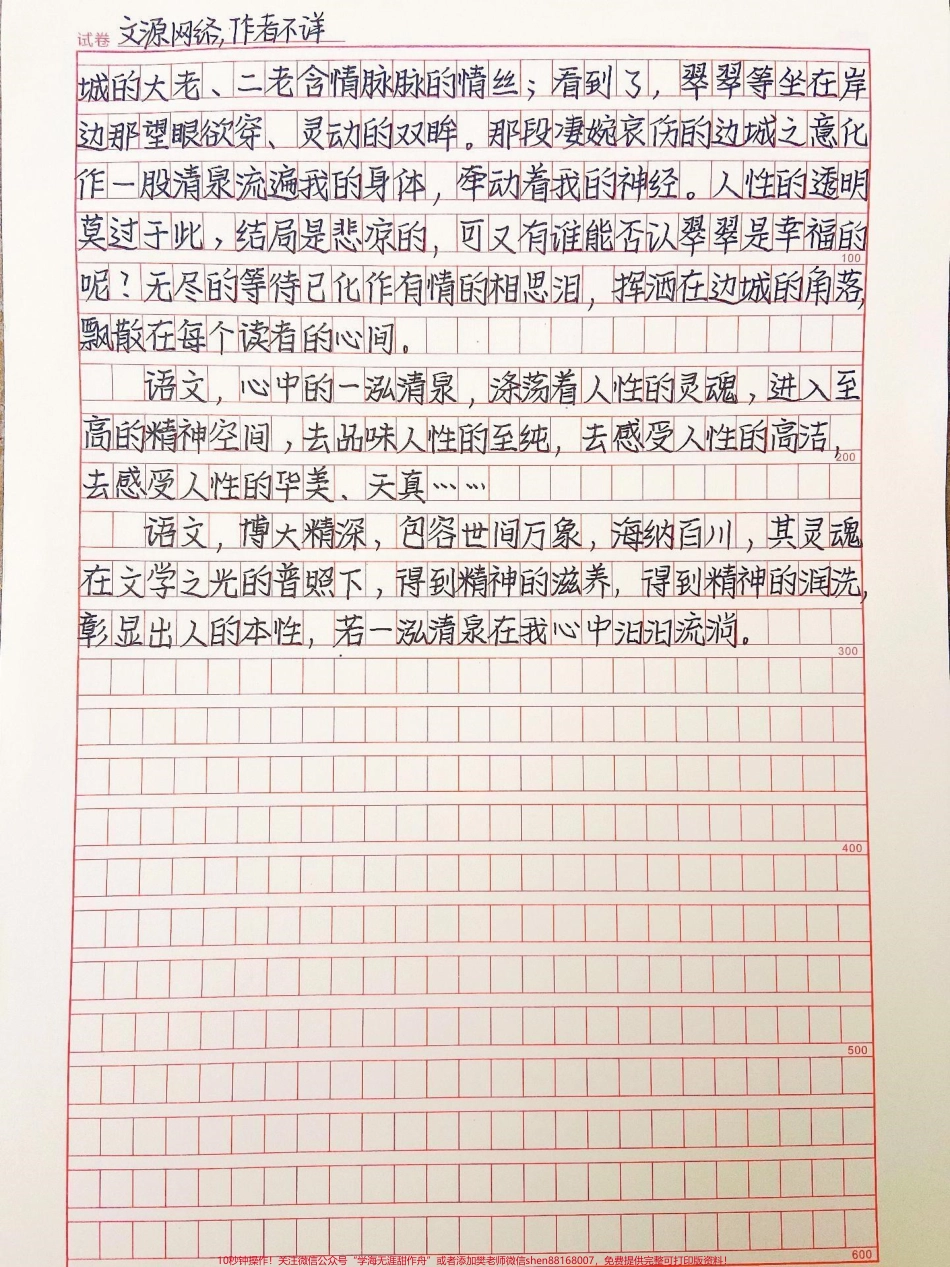 试卷 文源网络,作者不详
城的大老、二老含情脉脉的情丝；看到了，翠翠等坐在岸
边那望眼欲穿、灵动的双眸。那段凄婉哀伤的边城之意化
作一股清泉流遍我的身体，牵动着我的神经。人性的透明
莫过于此，结局是悲凉的，可又有谁能否认翠翠是幸福的
100
呢？无尽的等待已化作有情的相思泪，挥洒在边城的角落，
飘散在每个读者的心间。
语文，心中的一泓清泉，涤荡着人性的灵魂，进入至
高的精神空间，去品味人性的至纯，去感受人性的高洁，
200
去感受人性的华美、天真……
语文，博大精深，包容世间万象，海纳百川，其灵魂
在文学之光的普照下，得到精神的滋养，得到精神的润洗，
彰显出人的本性，若一泓清泉在我心中汩汩流淌。
300
400
500
600
10秒钟操作！关注微信公众号“学海无涯甜作舟”或者添加樊老师微信shen88168007，免费提供完整可打印版资料！